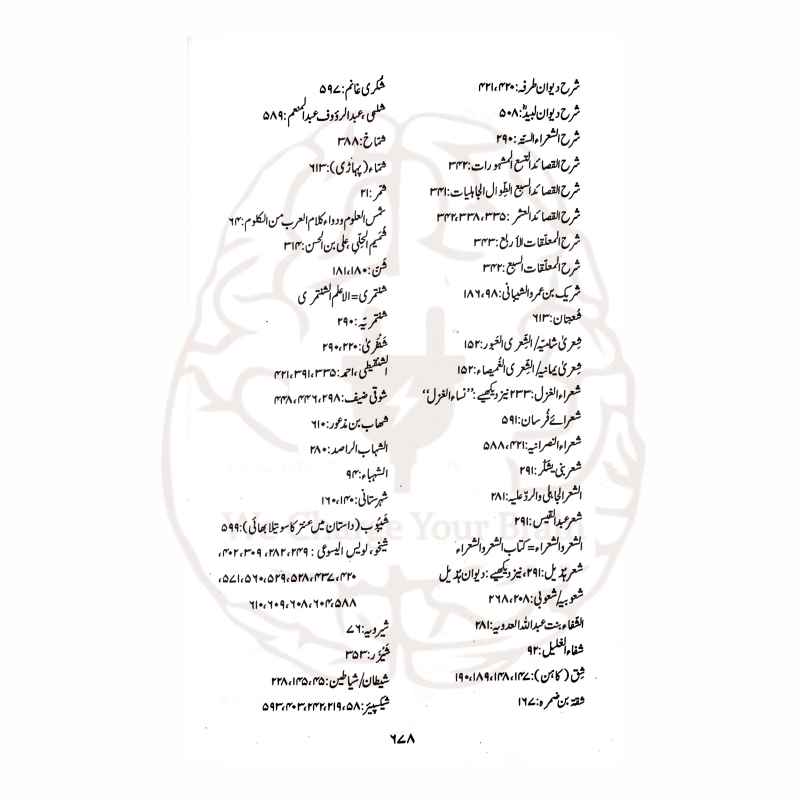 شرح دیوان طرفہ: ۴۲۰، ۴۲۱
شرح دیوان لبیدؓ: ۵۰۸
شرح الشعراء الستۃ: ۲۹۰
شرح القصائد التسع المشہورات: ۳۴۲
شرح القصائد السبع الطّوال الجاہلیات: ۳۴۱
شرح القصائد العشر: ۳۳۵، ۳۳۸، ۳۴۲
شرح المعلّقات الاربع: ۳۴۳
شرح المعلّقات السبع: ۳۴۲
شریک بن عمرو الشیبانی: ۹۸، ۱۸۶
شَعبَان: ۶۱۳
شِعریٰ شامیّہ/ الشِّعری العَبور: ۱۵۲
شِعریٰ یمانیہ/ الشِّعری الغُمیصاء: ۱۵۲
شعراء الغزل: ۲۳۳ نیز دیکھیے: ”نساء الغزل“
شعرائے فُرسان: ۵۹۱
شعراء النصرانیہ: ۴۲۱، ۵۸۸
شعر بنی یشکُر: ۲۹۱
الشعر الجاہلی والردّ علیہ: ۲۸۱
شعر عبدالقیس: ۲۹۱
الشعر والشعراء = کتاب الشعر والشعراء
شعر ہُذیل: ۲۹۱، نیز دیکھیے: دیوان ہُذیل
شعوبیہ/ شعوبی: ۲۰۸، ۲۶۸
الشفاء بنت عبداللہ العدویہ: ۲۸۱
شفاء الغلیل: ۹۲
شِق (کاہن): ۱۴۷، ۱۴۸، ۱۸۹، ۱۹۰
شقۃ بن ضمرہ: ۱۶۷
شُکری غانم: ۵۹۷
شلبی، عبدالرؤوف عبدالمنعم: ۵۸۹
شمّاخ: ۳۸۸
شمّاء (پہاڑی): ۶۱۳
شمّر: ۲۱
شمس العلوم ودواء کلام العرب من الکلوم: ۶۴
شُمَیم الحِلّی، علی بن الحسن: ۳۱۴
شَنّ: ۱۸۰، ۱۸۱
شنتمری = الاعلم الشنتمری
شنتمریّہ: ۲۹۰
شَنْفَریٰ: ۲۲۰، ۲۹۰
الشنقیطی، احمد: ۳۳۵، ۳۹۱، ۴۲۱
شوقی ضیف: ۲۹۸، ۴۴۶، ۴۴۸
شہاب بن مذعور: ۶۱۰
الشہاب الراصد: ۲۸۰
الشہباء: ۹۴
شہرستانی: ۱۴۰، ۱۶۰
شَیبُوب (داستان میں عنتر کا سوتیلا بھائی): ۵۹۹
شیخو، لویس الیسوعی: ۲۴۹، ۲۸۲، ۳۰۹، ۴۰۲،
۴۲۰، ۴۳۷، ۵۲۸، ۵۲۹، ۵۶۰، ۵۷۱،
۵۸۸، ۶۰۴، ۶۰۸، ۶۰۹، ۶۱۰
شیرویہ: ۷۶
شَیْزَر: ۳۵۳
شیطان/ شیاطین: ۴۵، ۱۴۵، ۲۲۸
شیکسپیئر: ۵۸، ۲۱۹، ۲۴۲، ۴۰۳، ۵۹۳
۶۷۸
We Change Your Brain